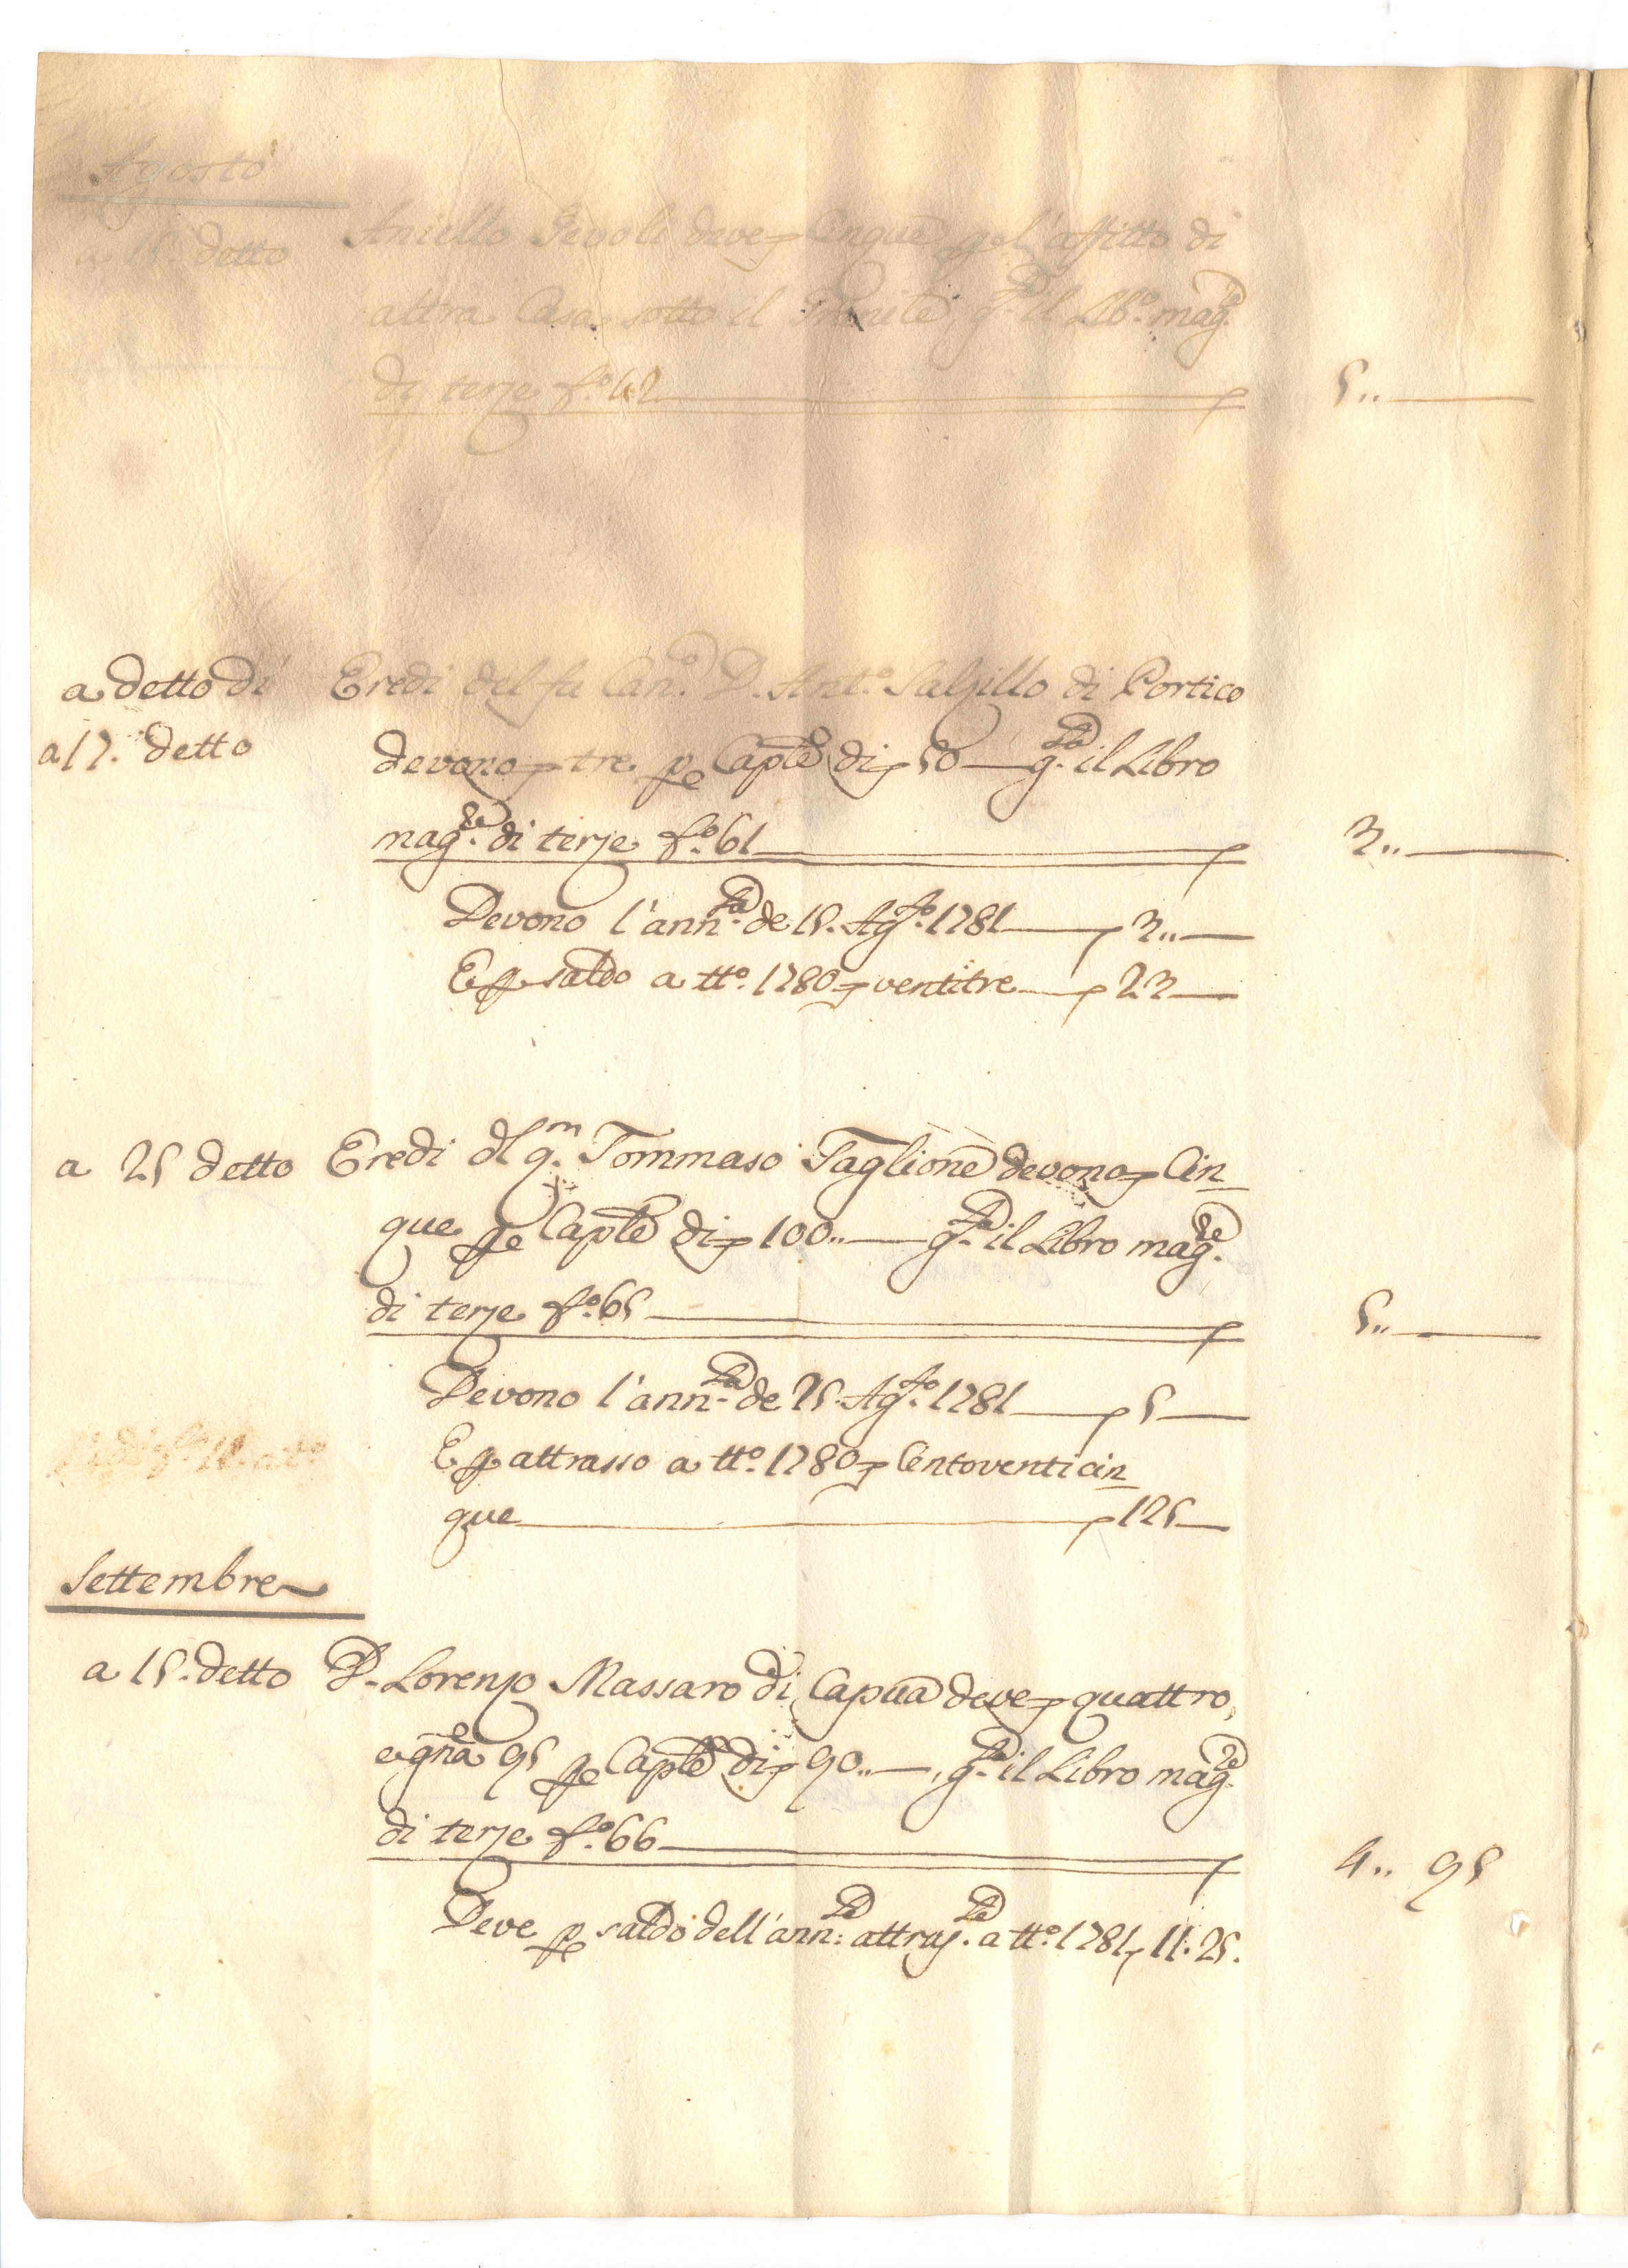 Agosto
a 15. detto Aniello Sevoli deve Cinque per l'affitto di
altra Casa sotto il g.ta il Lib.o mag.re
di terze f.o 42 5..
a detto di Eredi del fu Can.o D. Ant.o Salzillo di Portico
a 17. detto devono tre per Cap.le di 50 g.ta il Libro
mag.re di terze f.o 61 3..
Devono l'ann.ta de 15. Ag.to 1781 3..
E per saldo a tt.o 1780 ventitre 23
a 25 detto Eredi dl q.m Tommaso Taglione devono Cin
que per Cap.le di 100.. g.ta il Libro mag.re
di terze f.o 65 5..
Devono l'ann.ta de 25. Ag.to 1781 5
E per attrasso a tt.o 1780 Centoventicin
que 125
Settembre
a 15. detto D. Lorenzo Massaro di Capua deve quattro,
e gna 95 per Cap.le di 90.. g.ta il Libro mag.re
di terze f.o 66 4.. 95
Deve per saldo dell'ann.ta attras.ta a tt.o 1781 11. 25.